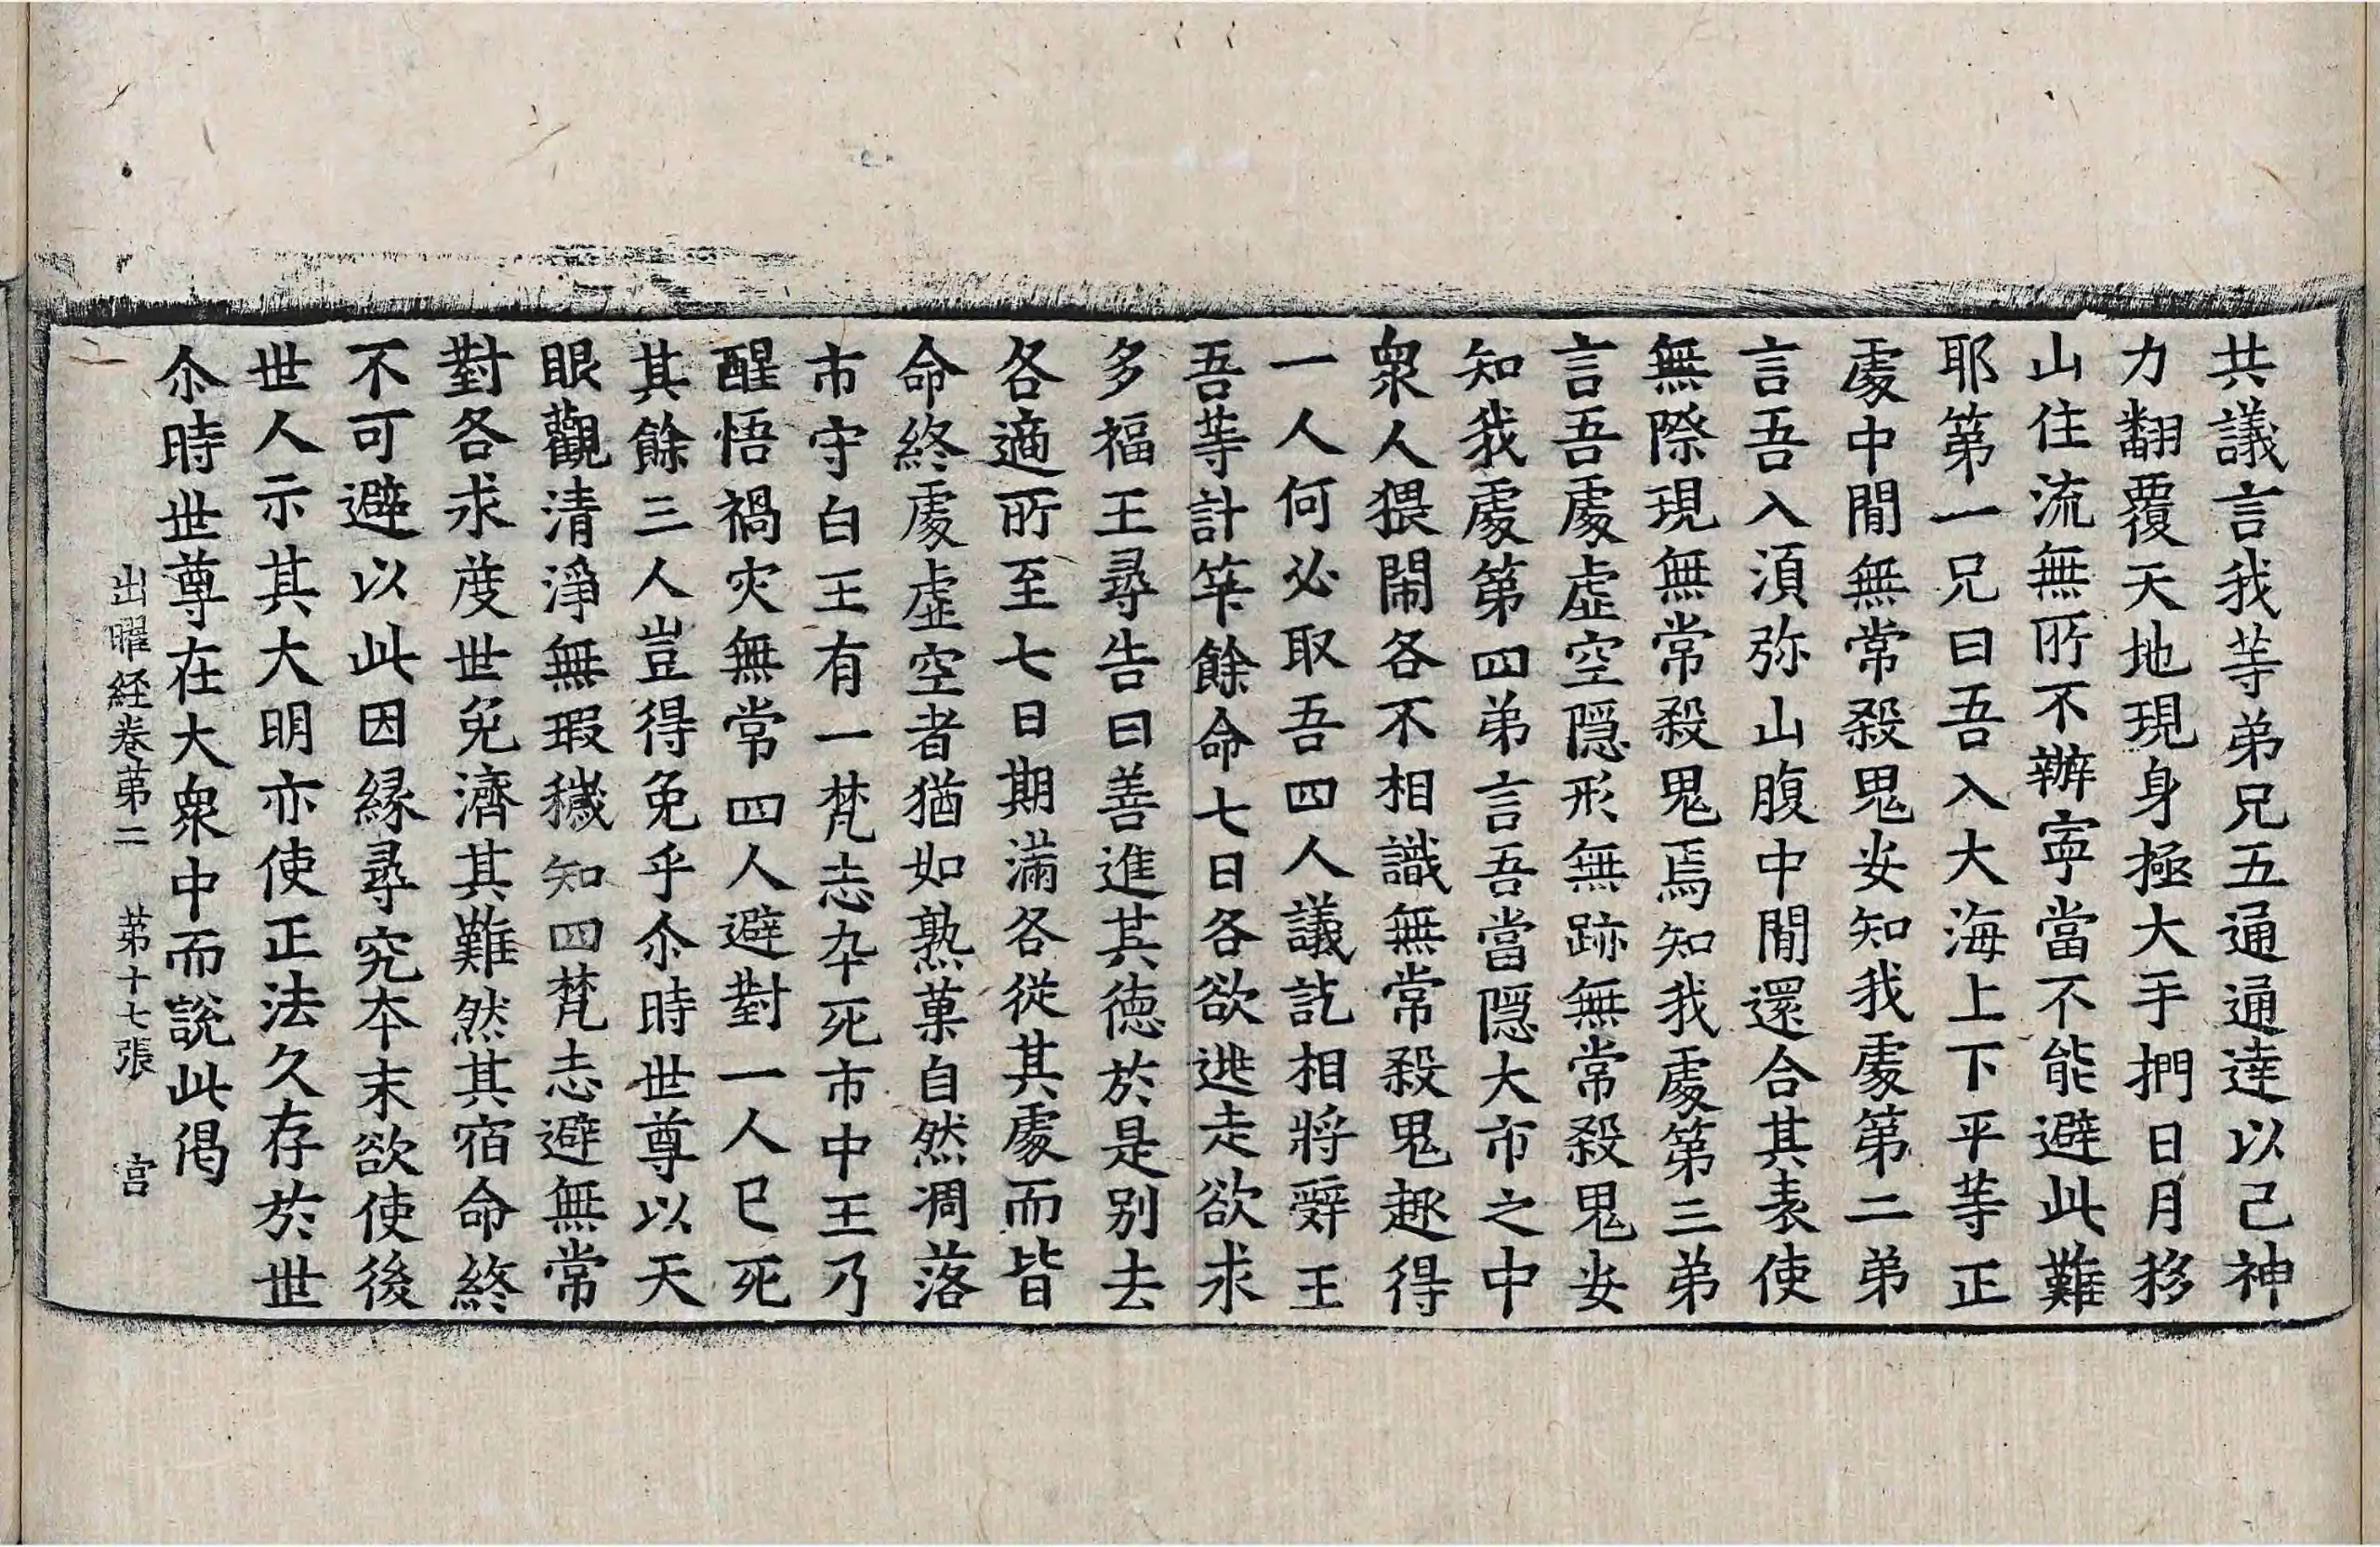 共議言我等弟兄五通通達以己神
力翻覆天地現身極大手捫日月移
山住流無所不辦寧當不能避此難
耶第一兄曰吾入大海上下平等正
處中閒無常殺鬼安知我處第二弟
言吾入須弥山腹中閒還合其表使
無際現無常殺鬼焉知我處第三弟
言吾處虛空隠形無跡無常殺鬼安
知我處第四弟言吾當隠大市之中
衆人猥閙各不相識無常殺鬼趣得
一人何必取吾四人議訖相將辤王
吾等計筭餘命七日各欲逃走欲求
多福王尋告曰善進其徳於是别去
各適所至七日期滿各從其處而皆
命終處虛空者猶如熟菓自然凋落
市守白王有一梵志卒死市中王乃
醒悟禍灾無常四人避對一人已死
其餘三人豈得免乎尒時世尊以天
眼觀清淨無瑕穢知四梵志避無常
對各求度世免濟其難然其宿命終
不可避以此因縁尋究夲末欲使後
世人示其大明亦使正法久存於世
尒時世尊在大衆中而說此偈
出曜経卷苐二　苐十七張　宫